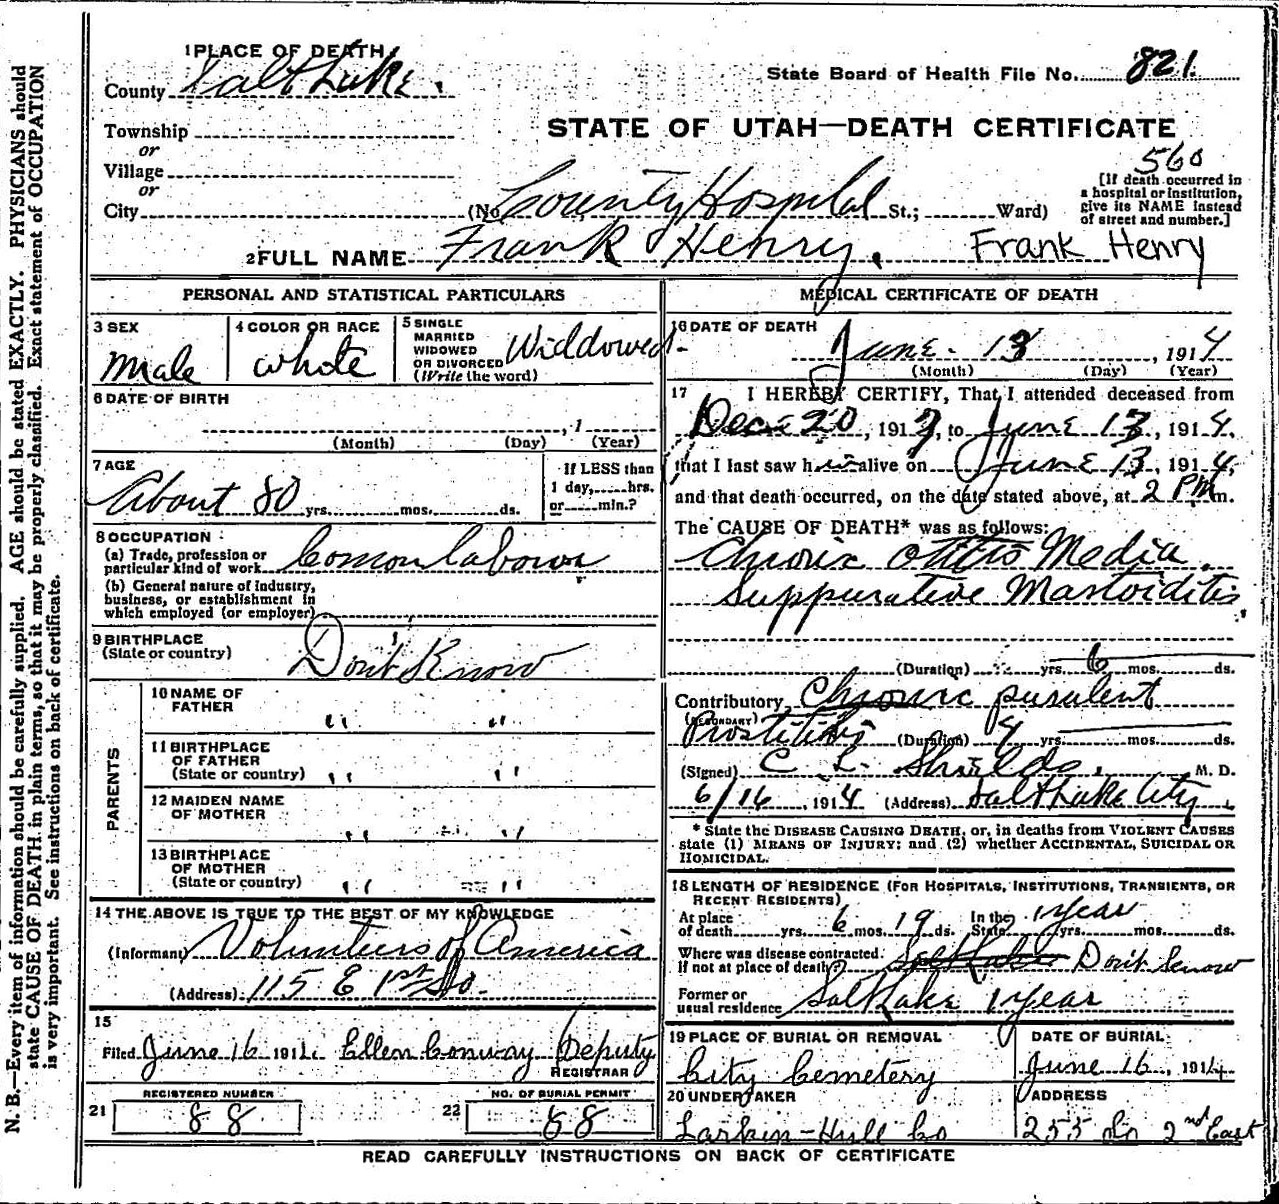 1 PLACE OF DEATH
County Salt Lake.
State Board of Health File No. 821.
Township
or
Village
or
City
STATE OF UTAH—DEATH CERTIFICATE
560
[If death occurred in
a hospital or institution,
give its NAME instead
of street and number.]
(No County Hospital St.; Ward)
2 FULL NAME Frank Henry. Frank Henry
PERSONAL AND STATISTICAL PARTICULARS
3 SEX
Male
4 COLOR OR RACE
white
5 SINGLE
MARRIED
WIDOWED
OR DIVORCED
(Write the word)
Widdowed
6 DATE OF BIRTH
, 1
(Month) (Day) (Year)
7 AGE
About 80 yrs. mos. ds.
If LESS than
1 day, hrs.
or min.?
8 OCCUPATION
(a) Trade, profession or
particular kind of work Comon labour
(b) General nature of industry,
business, or establishment in
which employed (or employer)
9 BIRTHPLACE
(State or country) Don't Know
PARENTS
10 NAME OF
FATHER " "
11 BIRTHPLACE
OF FATHER
(State or country) " "
12 MAIDEN NAME
OF MOTHER " "
13 BIRTHPLACE
OF MOTHER
(State or country) " "
14 THE ABOVE IS TRUE TO THE BEST OF MY KNOWLEDGE
(Informant) Volunteers of America
(Address) 115 E 1st So.
15
Filed June 16 1914 Ellen Conway Deputy
REGISTRAR
REGISTERED NUMBER
21 88
NO. OF BURIAL PERMIT
22 88
MEDICAL CERTIFICATE OF DEATH
16 DATE OF DEATH
June 13, 1914
(Month) (Day) (Year)
17 I HEREBY CERTIFY, That I attended deceased from
Dec 20, 1913, to June 13, 1914,
that I last saw him alive on June 13, 1914,
and that death occurred, on the date stated above, at 2 PM m.
The CAUSE OF DEATH* was as follows:
Chronic Otitis Media.
Suppurative Mastoiditis,
(Duration) yrs. 6 mos. ds.
Contributory Chronic purulent
(SECONDARY)
Prostatitis (Duration) 4 yrs. mos. ds.
(Signed) C. L. Shields, M. D.
6/16, 1914 (Address) Salt Lake City.
* State the DISEASE CAUSING DEATH, or, in deaths from VIOLENT CAUSES
state (1) MEANS OF INJURY; and (2) whether ACCIDENTAL, SUICIDAL OR
HOMICIDAL.
18 LENGTH OF RESIDENCE (FOR HOSPITALS, INSTITUTIONS, TRANSIENTS, OR
RECENT RESIDENTS)
At place
of death yrs. 6 mos. 19 ds. In the State 1 year yrs. mos. ds.
Where was disease contracted.
If not at place of death? Salt Lake Don't know
Former or
usual residence Salt Lake 1 year
19 PLACE OF BURIAL OR REMOVAL
City Cemetery
DATE OF BURIAL
June 16, 1914
20 UNDERTAKER
Larkin-Hull Co
ADDRESS
255 So 2nd East
READ CAREFULLY INSTRUCTIONS ON BACK OF CERTIFICATE
N. B.—Every item of information should be carefully supplied. AGE should be stated EXACTLY. PHYSICIANS should
state CAUSE OF DEATH in plain terms, so that it may be properly classified. Exact statement of OCCUPATION
is very important. See instructions on back of certificate.